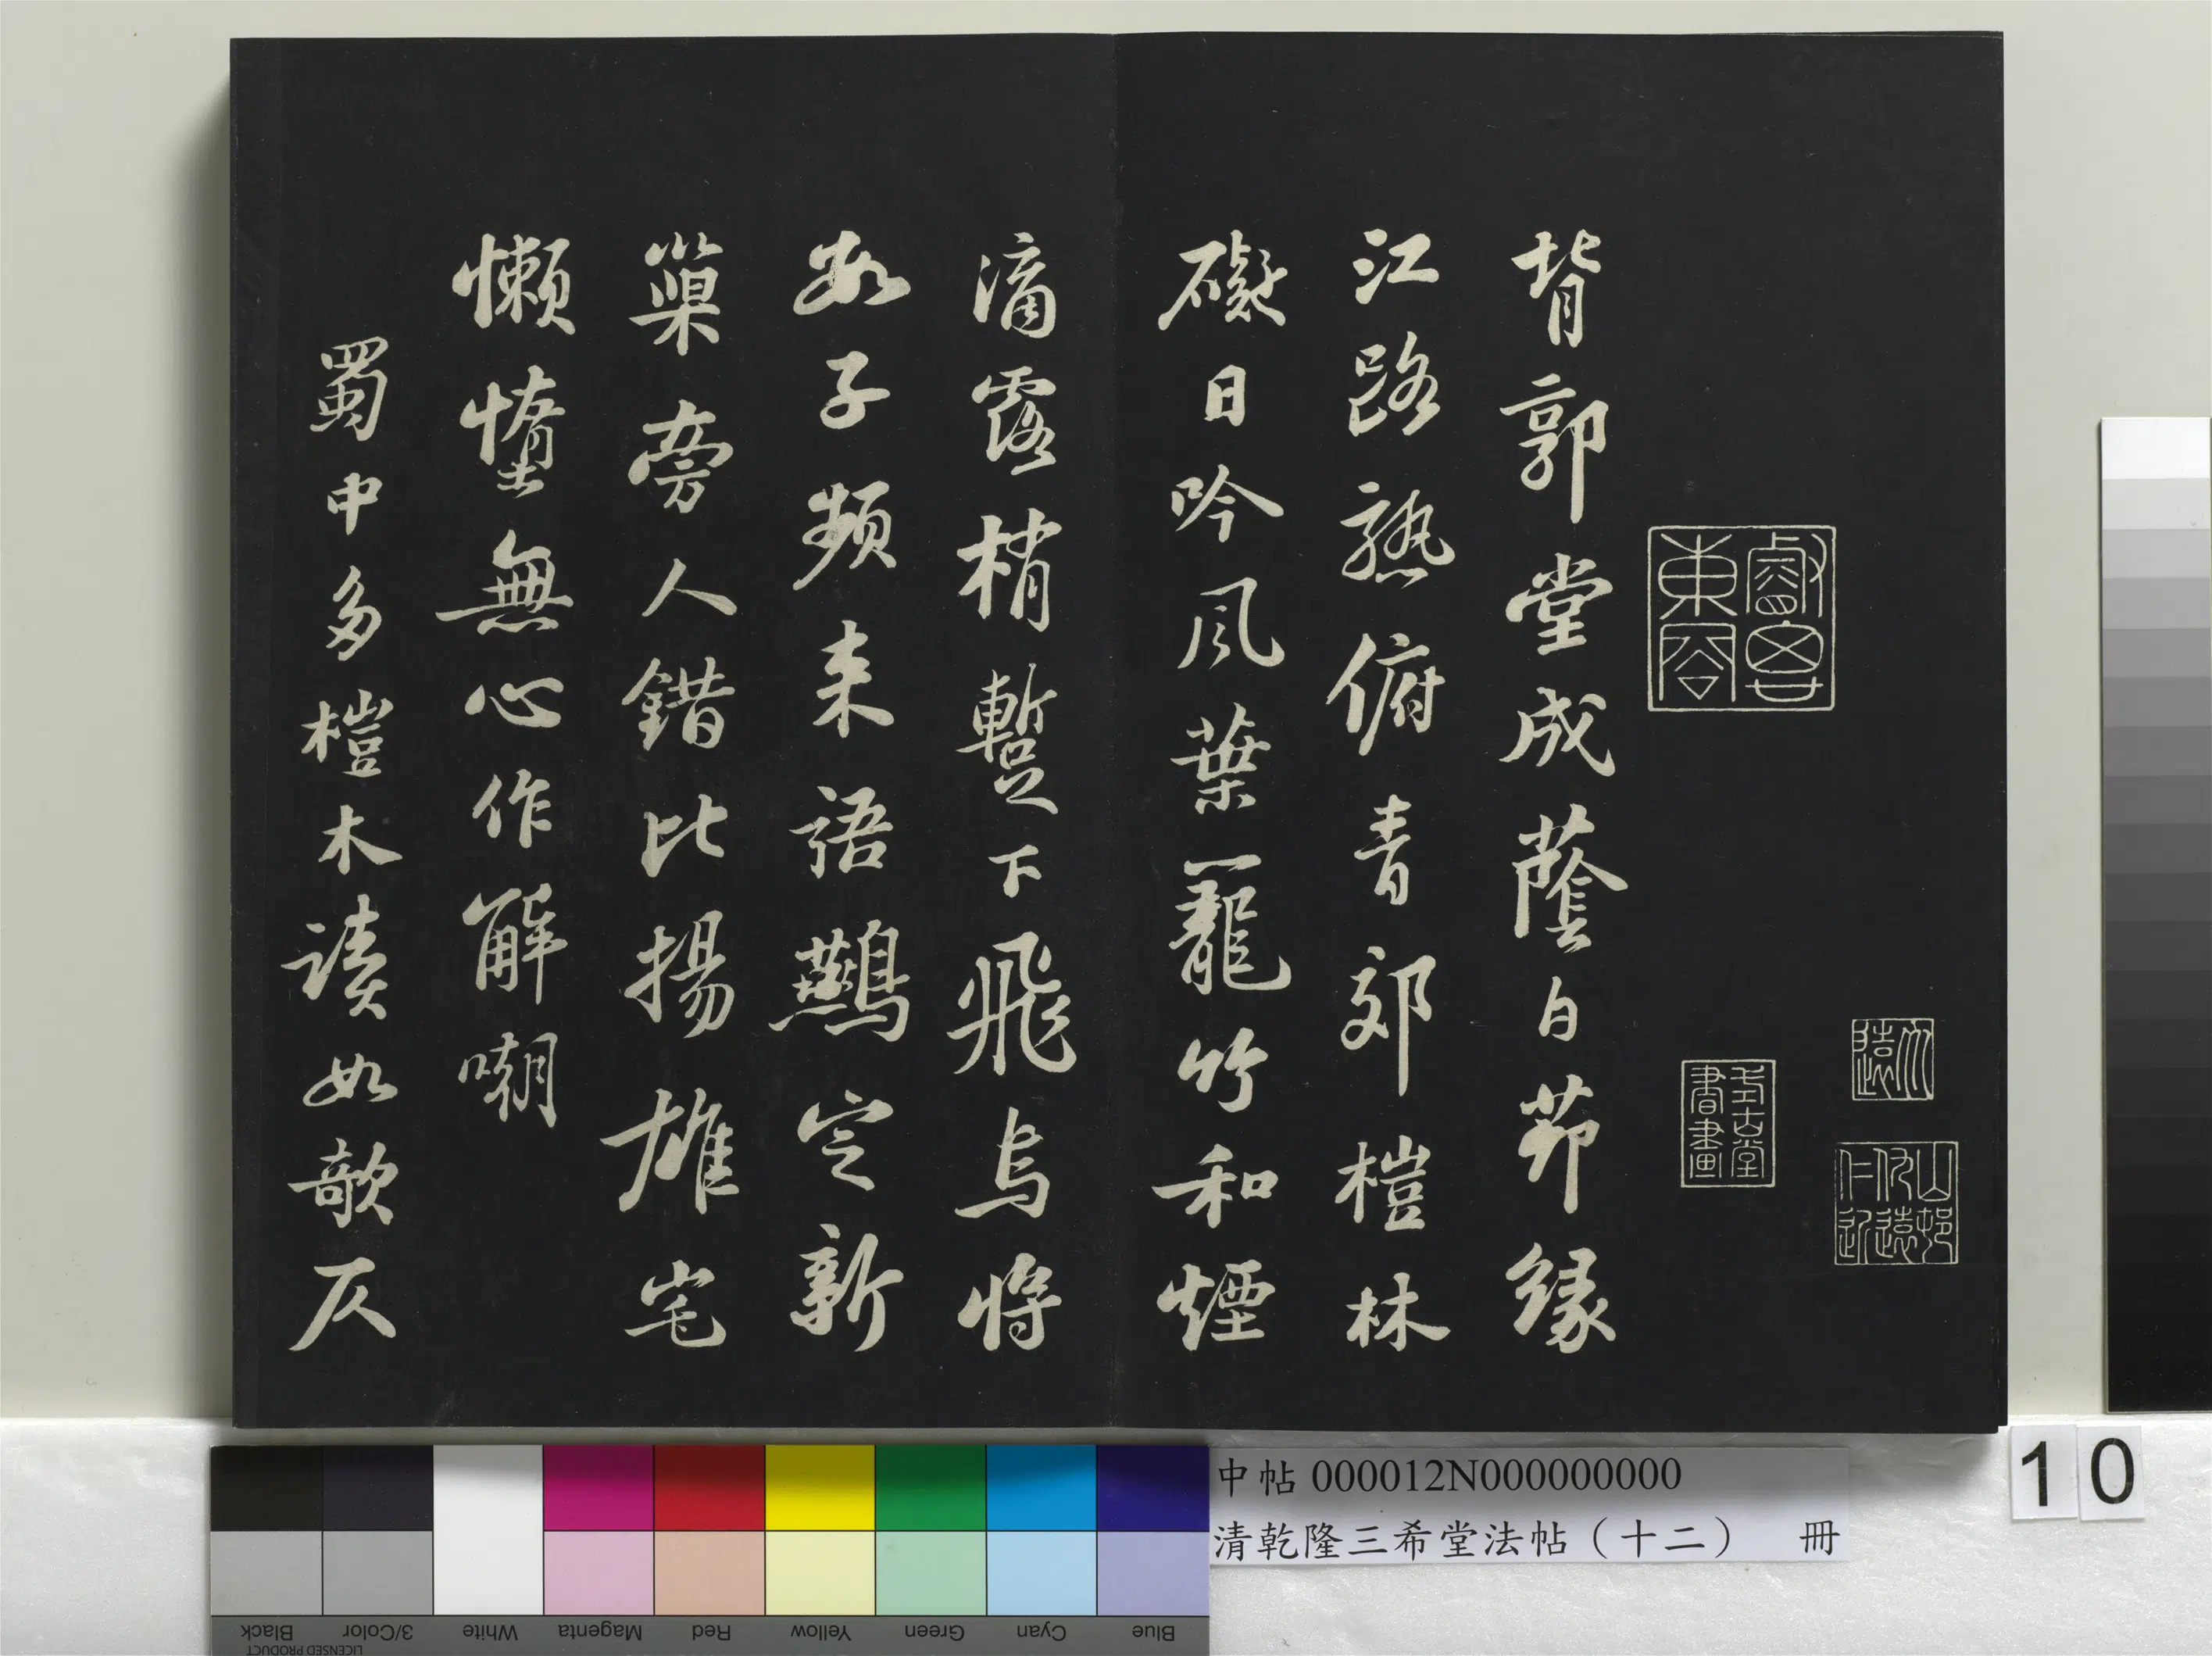 背郭堂成蔭白茆緣
江路熟俯青郊榿林
礙日吟風葉籠竹和煙
滴露梢暫下飛烏將
數子頻来語鷰定新
巢旁人錯比揚雄宅
懶墯無心作解嘲
蜀中多榿木讀如欹仄
考古堂
書畫
山邨
仇遠
仁近
中帖 000012N000000000
清乾隆三希堂法帖（十二） 冊
10
Black
3/Color
White
Magenta
Red
Yellow
Green
Cyan
Blue
LICENSED PRODUCT